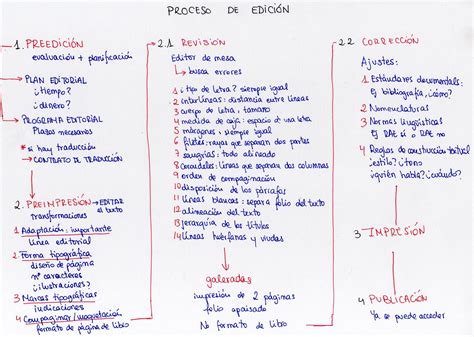 PROCESO DE EDICIÓN
1. PREEDICIÓN
evaluación + planificación
PLAN EDITORIAL
¿tiempo?
¿dinero?
PROGRAMA EDITORIAL
Plazos necesarios
* si hay traducción
→ CONTRATO DE TRADUCCIÓN
2. PREIMPRESIÓN → EDITAR
el texto
transformaciones
1 Adaptación: importante
línea editorial
2. Forma tipográfica
diseño de página
nº caracteres
¿ilustraciones?
3 Marcas tipográficas
indicaciones
4 Compaginar/maquetación
formato de página de libro
2.1 REVISIÓN
Editor de mesa
↳ busca errores
1. ¿tipo de letra? siempre igual
2 interlíneas: distancia entre líneas
3 cuerpo de letra: tamaño
4 medida de caja: espacio d un texto
5 márgenes: siempre igual
6 filetes: rayas que separan dos partes
7 sangrías: todo alineado
8 corondeles: líneas que separan dos columnas
9 orden de compaginación
10 disposición de los párrafos
11 líneas blancas: separa folio del texto
12 alineación del texto
13 jerarquía de los títulos
14 líneas huérfanas y viudas
galeradas
impresión de 2 páginas
folio apaisado
No formato de libro
2.2 CORRECCIÓN
Ajustes:
1 Estándares documentals:
Ej bibliografía, ¿cómo?
2 Nomenclaturas
3 Normas lingüísticas
Ej RAE sí o RAE no
4 Reglas de construcción textual
¿estilo? ¿tono?
¿quién habla? ¿cuándo?
3 IMPRESIÓN
4 PUBLICACIÓN
Ya se puede acceder.